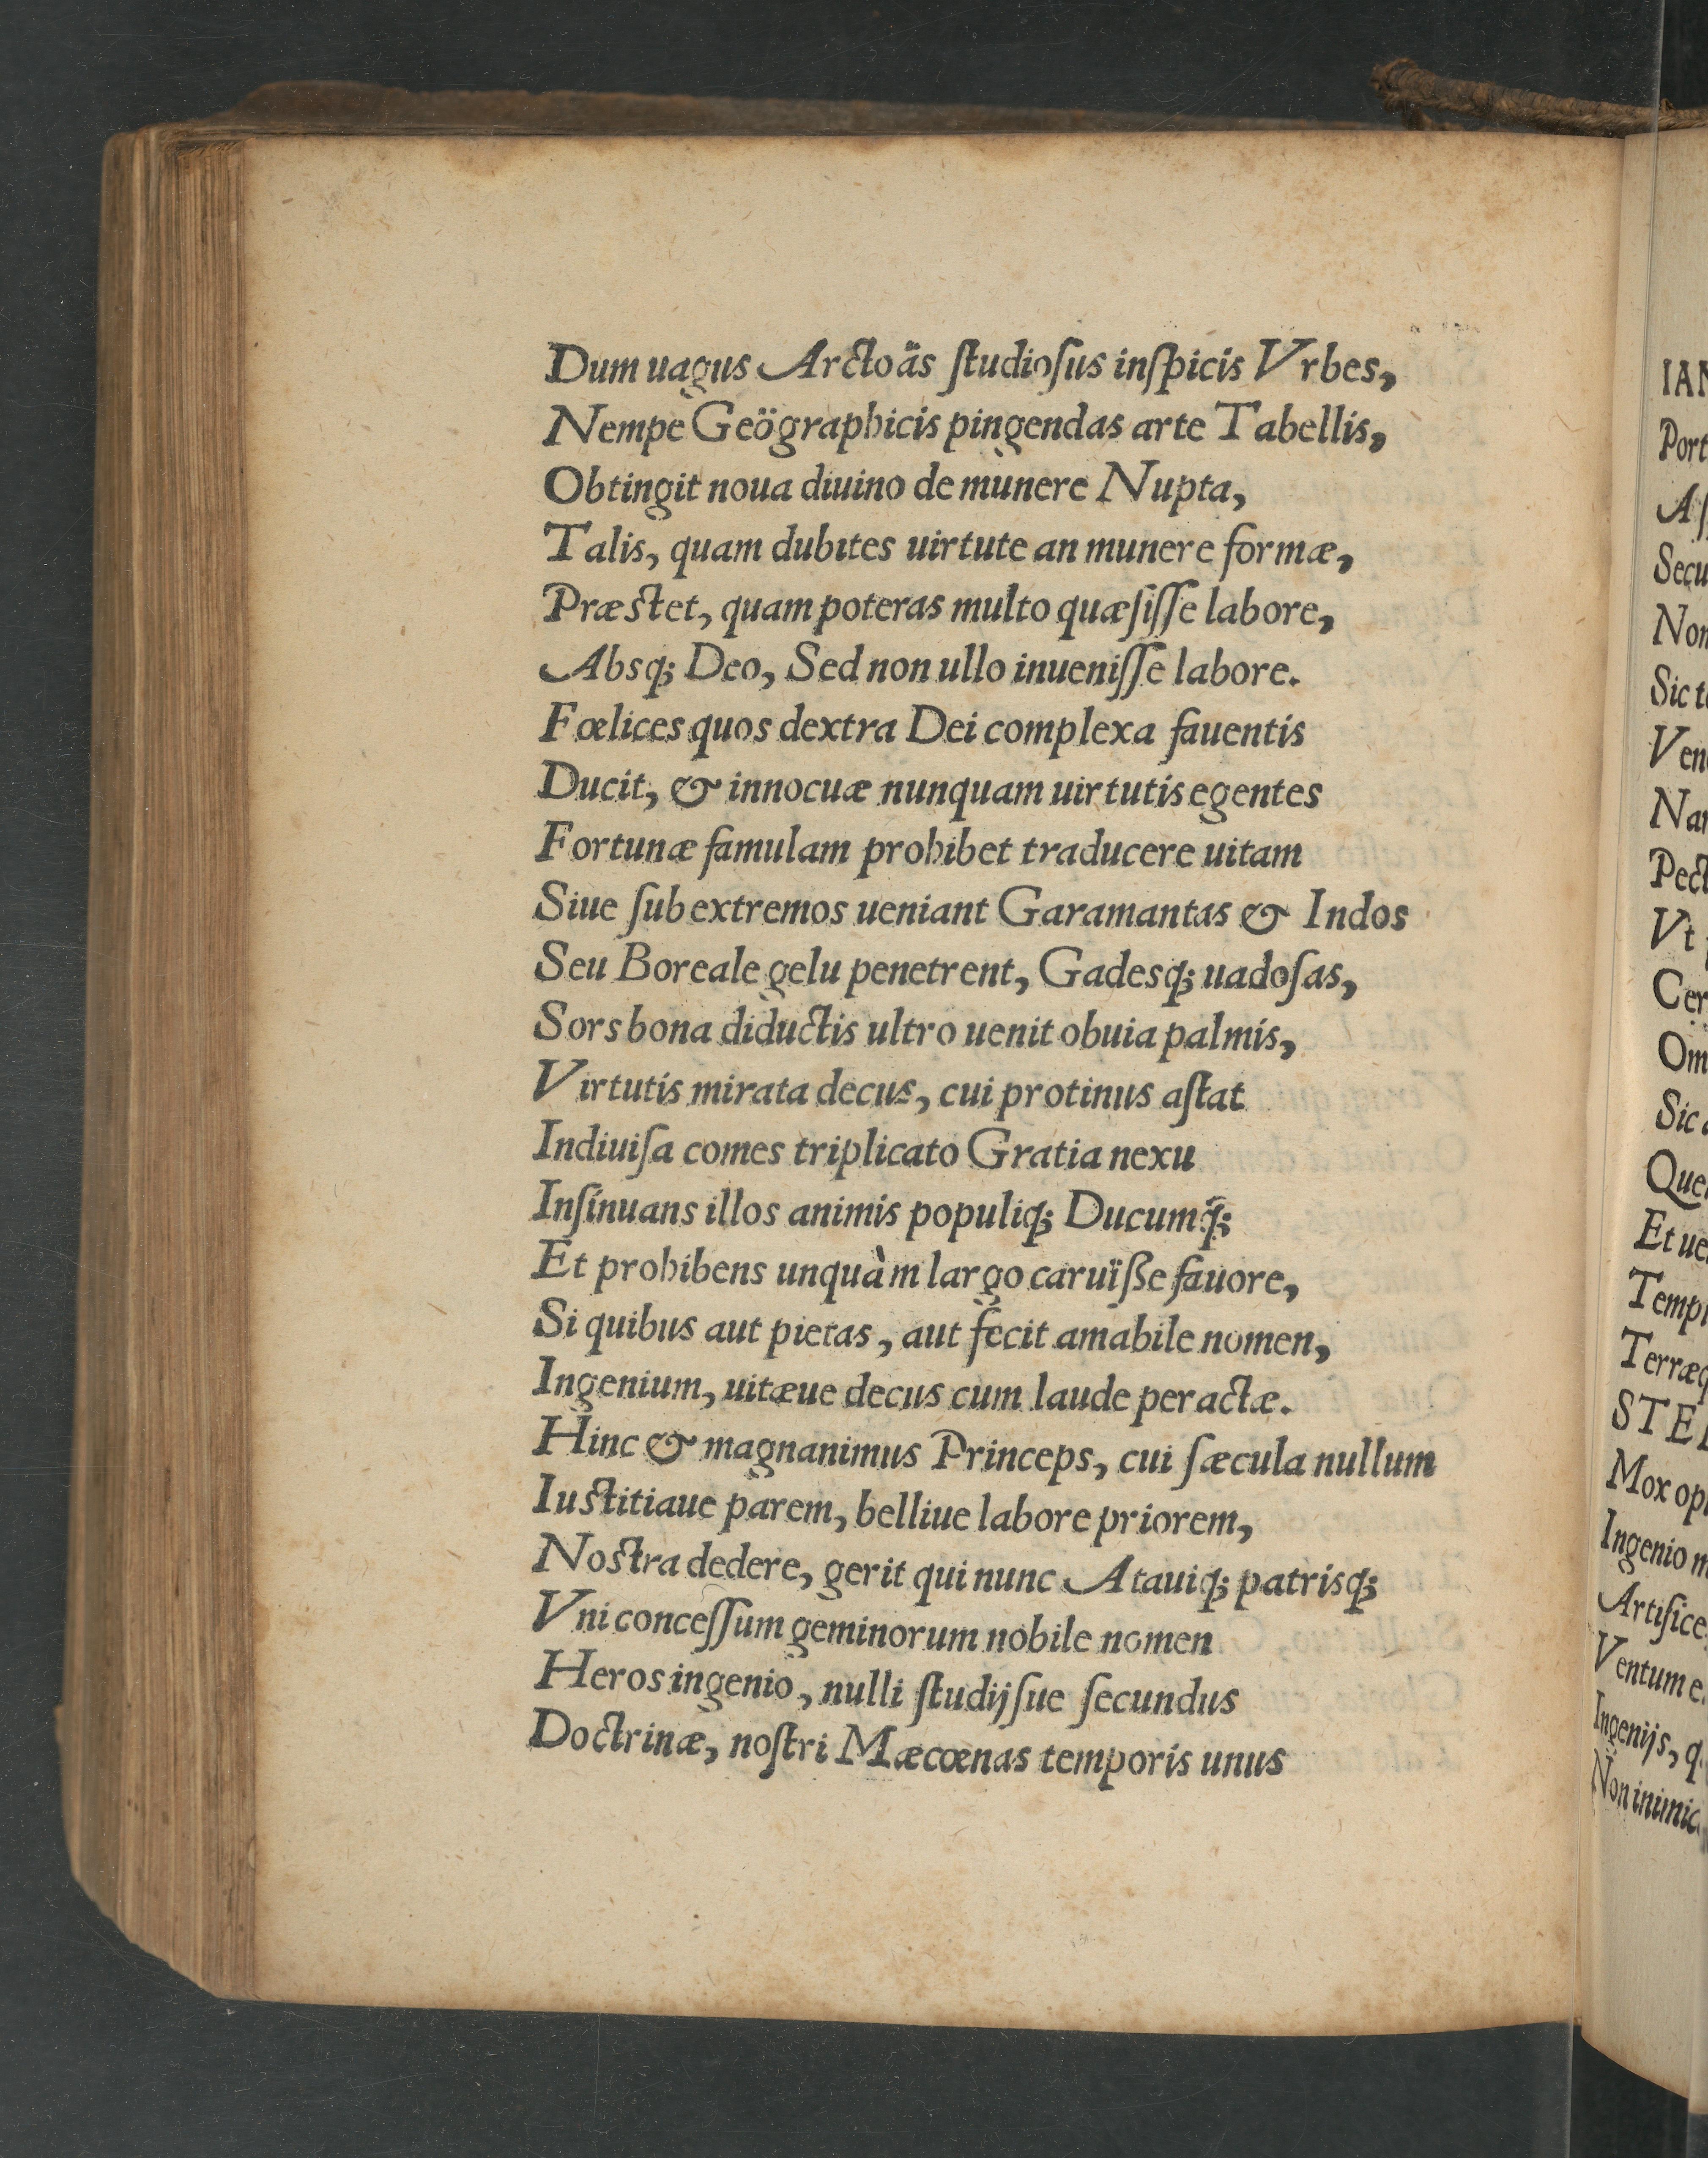 Dum uagus Arctoäs ſtudioſus inſpicis Vrbes,
Nempe Geögraphicis pingendas arte Tabellis,
Obtingit noua diuino de munere Nupta,
Talis, quam dubites uirtute an munere formæ,
Præſtet, quam poteras multo quæſiſſe labore,
Absq; Deo, Sed non ullo inueniſſe labore.
Fœlices quos dextra Dei complexa fauentis
Ducit, & innocuæ nunquam uirtutis egentes
Fortunæ famulam prohibet traducere uitam
Siue ſub extremos ueniant Garamantas & Indos
Seu Boreale gelu penetrent, Gadesq; uadoſas,
Sors bona diductis ultro uenit obuia palmis,
Virtutis mirata decus, cui protinus aſtat
Indiuiſa comes triplicato Gratia nexu
Inſinuans illos animis populiq; Ducumq́;
Et prohibens unquàm largo caruïſße fauore,
Si quibus aut pietas, aut fecit amabile nomen,
Ingenium, uitæue decus cum laude peractæ.
Hinc & magnanimus Princeps, cui ſæcula nullum
Iuſtitiaue parem, belliue labore priorem,
Noſtra dedere, gerit qui nunc Atauiq; patrisq;
Vni conceſſum geminorum nobile nomen
Heros ingenio, nulli ſtudijſue ſecundus
Doctrinæ, noſtri Mæcœnas temporis unus
Port
Secu
Sic t
Pect
Vt
Sic
Et ue
Temp
Mox op
Ingenio m
Artifice
Ventum e
Ingenijs, q
Non inimic